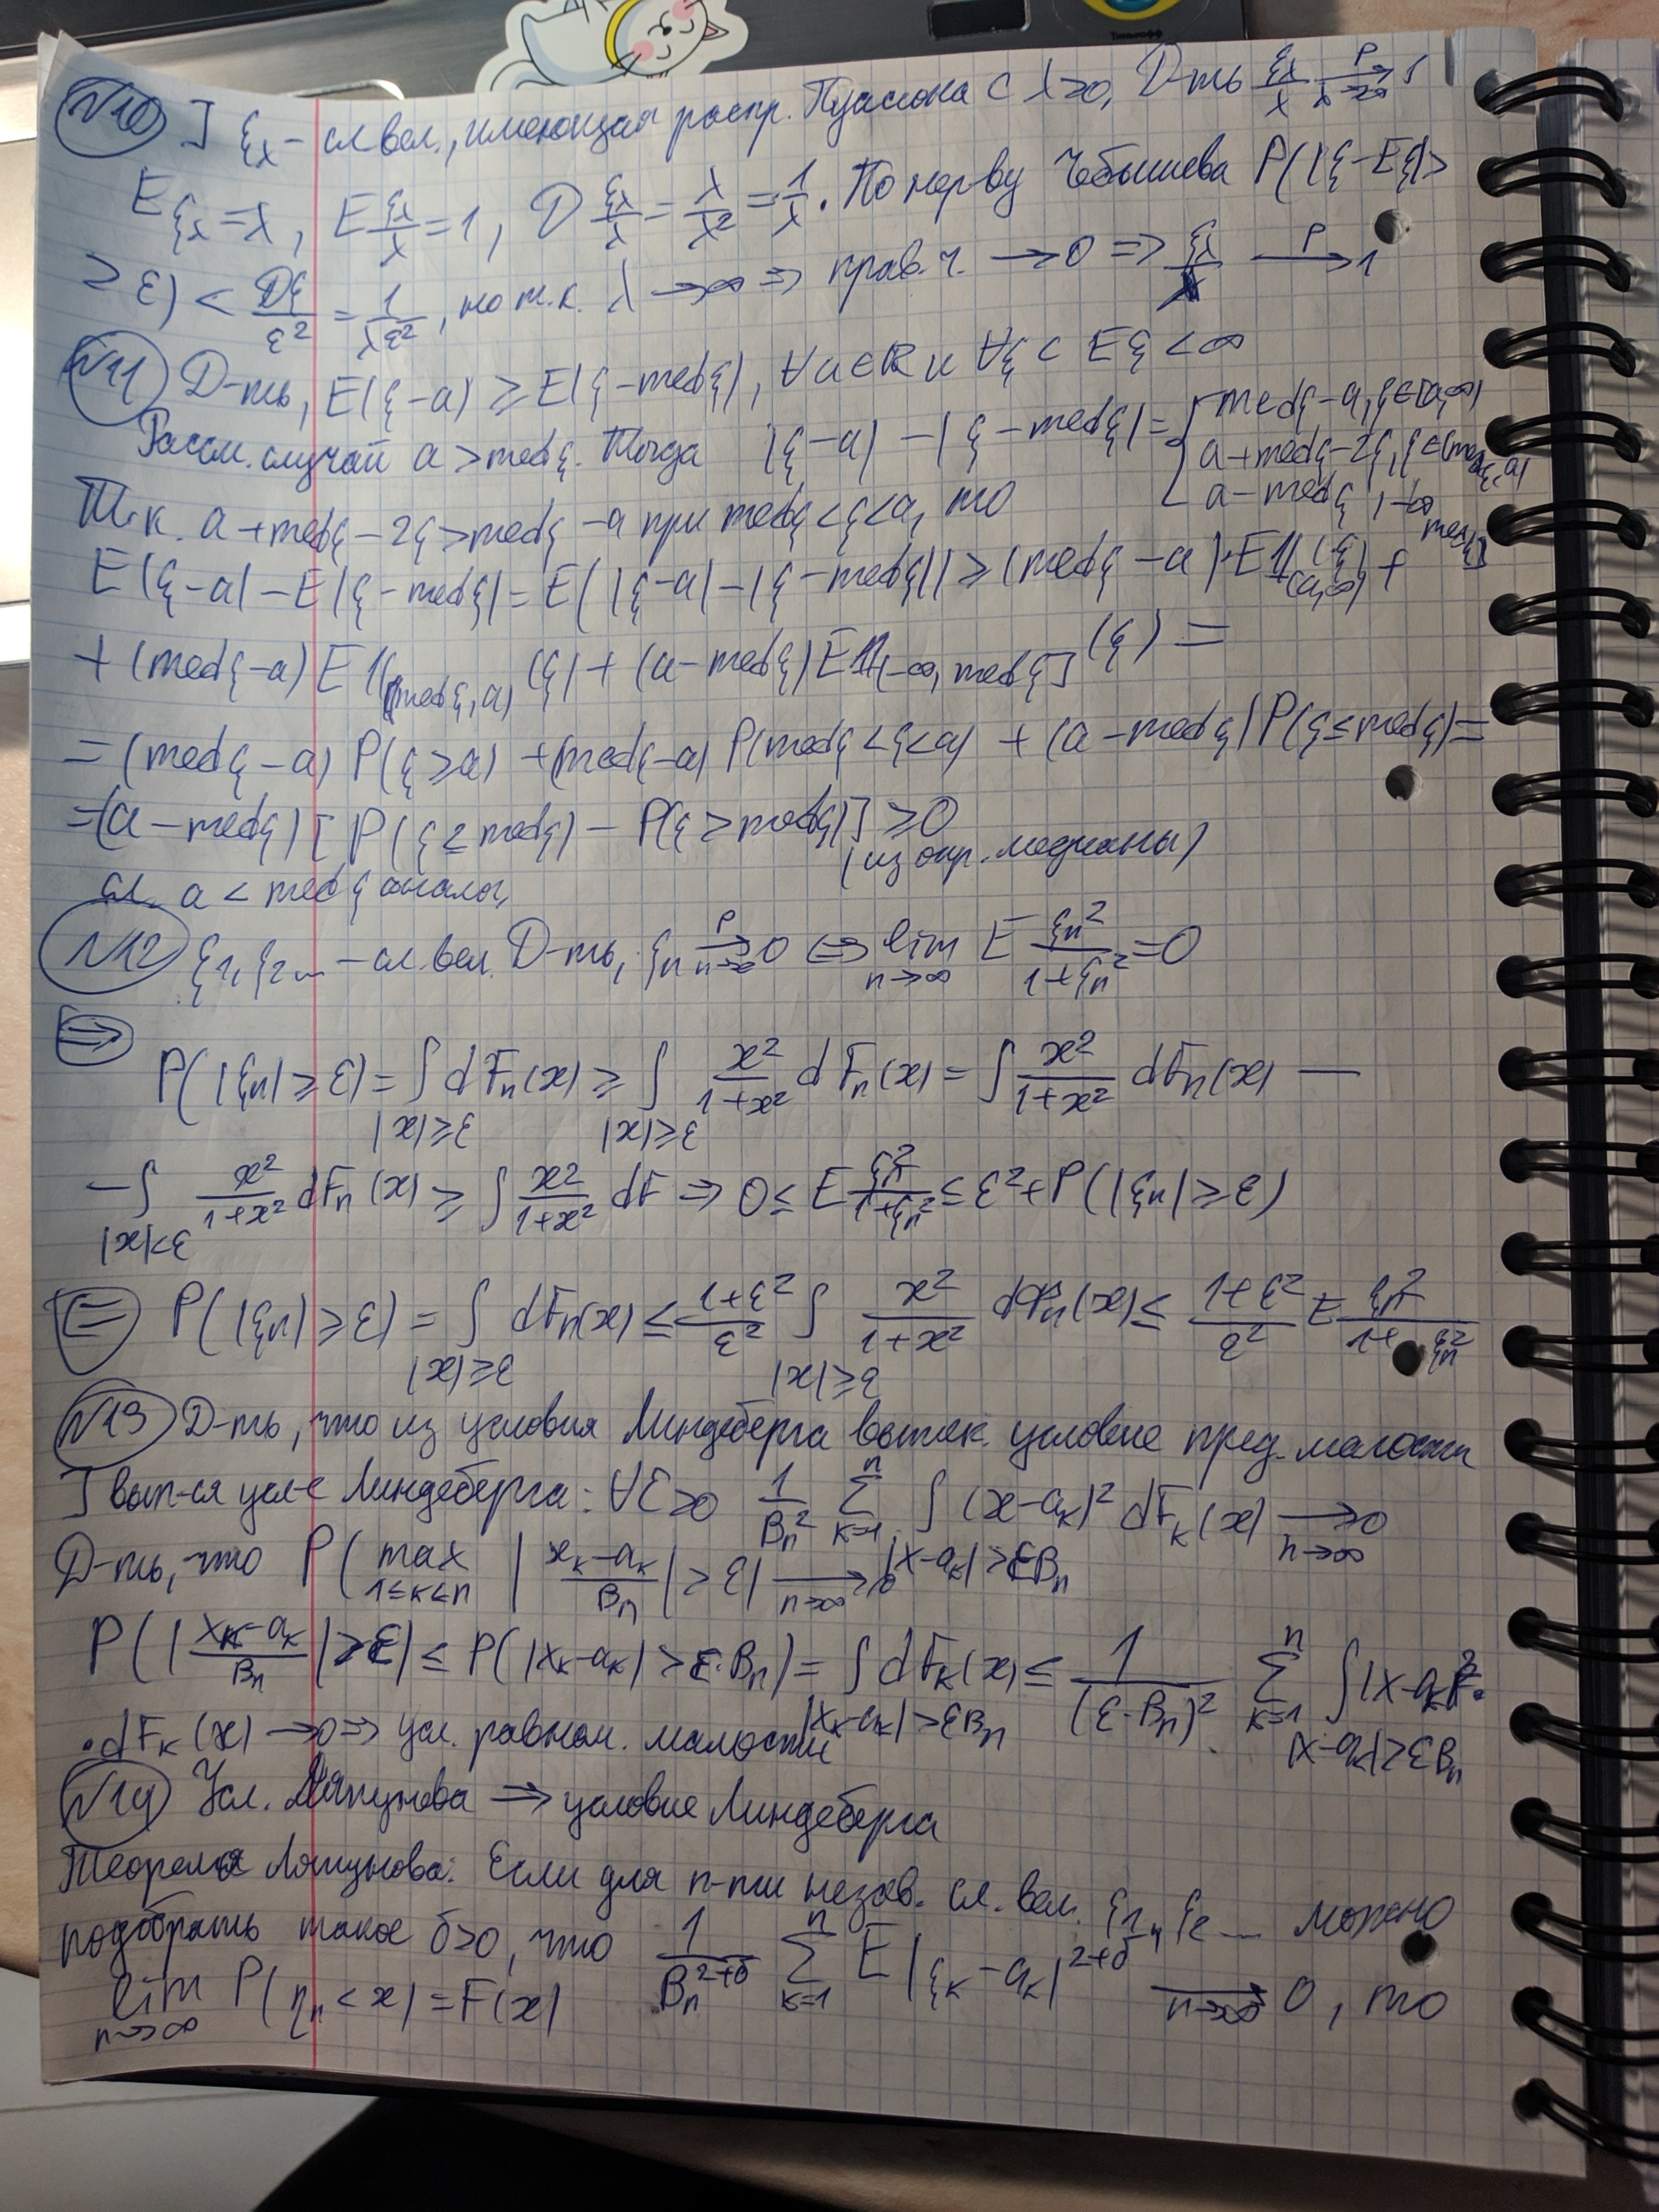 N10 ] ξλ - сл. вел., имеющая распр. Пуассона с λ>0, Д-ть ξλ/λ P→ λ→∞ 1
Eξλ = λ, E ξλ/λ = 1, D ξλ/λ = λ/λ² = 1/λ. По нер-ву Чебышева P(|ξ-Eξ|>
≥ ε) < Dξ/ε² = 1/λε², но т.к. λ→∞ => прав. ч. →0 => ξλ/λ P→ 1
N11 Д-ть, E|ξ-a| ≥ E|ξ-medξ|, ∀a∈ℝ и ∀ξ > Eξ < ∞
Рассм. случай a > medξ. Тогда |ξ-a| - |ξ-medξ| = { medξ-a, ξ∈[a,∞)
a+medξ-2ξ, ξ∈(medξ,a)
a-medξ, (-∞ medξ]
Т.к. a+medξ-2ξ > medξ-a при medξ<ξ<a, то
E|ξ-a| - E|ξ-medξ| = E(|ξ-a| - |ξ-medξ|) ≥ (medξ-a)·E1(a,∞)(ξ) +
+ (medξ-a) E1(medξ,a)(ξ) + (a-medξ) E1(-∞, medξ](ξ) =
= (medξ-a) P(ξ≥a) + (medξ-a) P(medξ<ξ<a) + (a-medξ) P(ξ≤medξ) =
= (a-medξ) [P(ξ≤medξ) - P(ξ>medξ)] ≥ 0
(из опр. медианы)
сл. a < medξ аналог.
N12 ξ1, ξ2 ... - сл. вел. Д-ть, ξn P→ n→∞ 0 <=> lim n→∞ E ξn²/(1+ξn²) = 0
=>
P(|ξn|≥ε) = ∫ |x|≥ε dFn(x) ≥ ∫ |x|≥ε x²/(1+x²) dFn(x) = ∫ x²/(1+x²) dFn(x) —
- ∫ |x|<ε x²/(1+x²) dFn(x) ≥ ∫ x²/(1+x²) dF => 0 ≤ E ξn²/(1+ξn²) ≤ ε² + P(|ξn|≥ε)
<= P(|ξn|≥ε) = ∫ |x|≥ε dFn(x) ≤ (1+ε²)/ε² ∫ |x|≥ε x²/(1+x²) dFn(x) ≤ (1+ε²)/ε² E ξn²/(1+ξn²)
N13 Д-ть, что из условия Линдеберга вытек. условие пред. малости
] вып-ся усл-е Линдеберга: ∀ε>0 1/Bn² Σ k=1 n ∫ |x-ak|>εBn (x-ak)² dFk(x) → n→∞ 0
Д-ть, что P(max 1≤k≤n |xk-ak/Bn| > ε) → n→∞ 0
P(|xk-ak/Bn| > ε) ≤ P(|xk-ak| > ε·Bn) = ∫ |xk-ak|>εBn dFk(x) ≤ 1/(ε·Bn)² Σ k=1 n ∫ |x-ak|>εBn |x-ak|² ·
· dFk(x) → 0 => усл. равном. малости
N14 Усл. Ляпунова => условие Линдеберга
Теорема Ляпунова: Если для п-ти незав. сл. вел. ξ1, ξ2 ... можно
подобрать такое δ>0, что 1/Bn^(2+δ) Σ k=1 n E|ξk-ak|^(2+δ) → n→∞ 0, то
lim n→∞ P(ηn < x) = F(x)